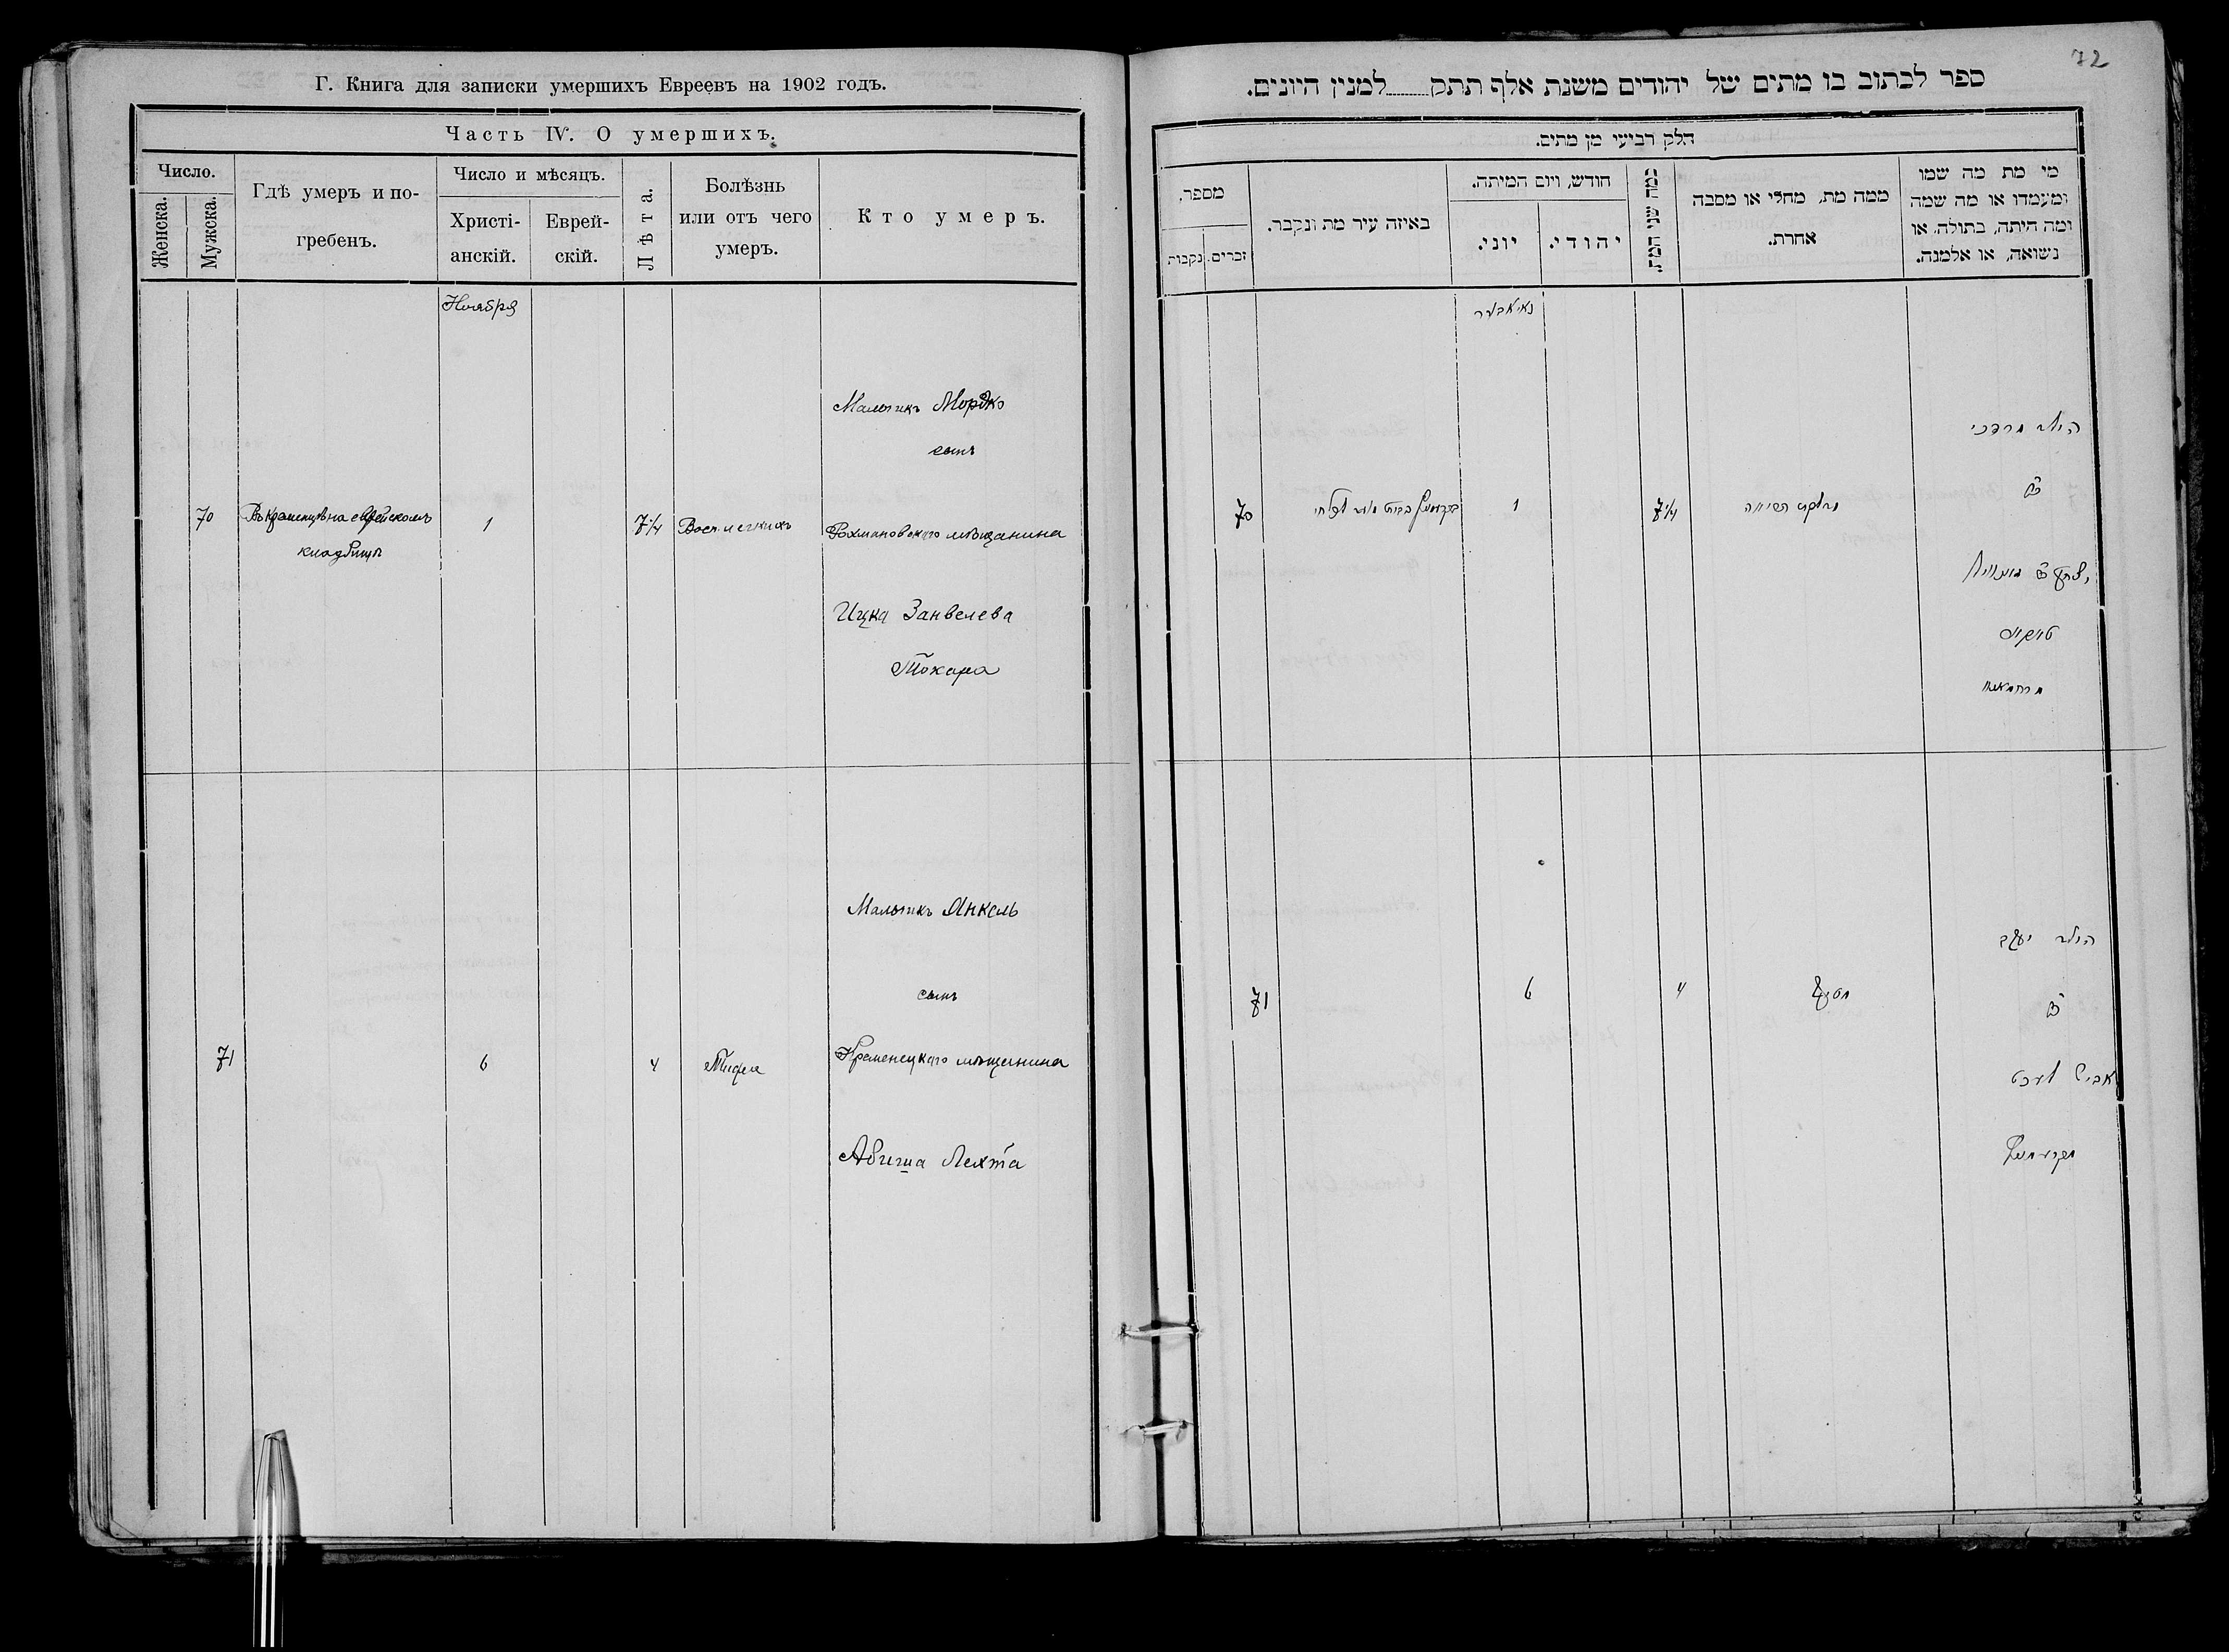 Г. Книга для записки умершихъ Евреевъ на 1902 годъ.
Часть IV. О умершихъ.
Число.
Женска.
Мужска.
Гдѣ умеръ и по-
гребенъ.
Число и мѣсяцъ.
Христі-
анскій.
Еврей-
скій.
Лѣта.
Болѣзнь
или отъ чего
умеръ.
Кто умеръ.
Ноября
Мальчикъ Мордко
сынъ
70 Въ Кременцѣ на еврейскомъ 1 7 1/4 Восп. легкихъ Рохмановского мѣщанина
кладбищѣ
Ицка Занвелева
Токара
Мальчикъ Янкель
сынъ
71 6 4 Тифа Кременецкаго мѣщанина
Авигша Лехта
72
ספר לכתוב בו מתים של יהודים משנת אלף תתק למנין היונים.
חלק רביעי מן מתים.
מספר.
זכרים.
נקבות
באיזה עיר מת ונקבר.
חודש, ויום המיתה.
יוני.
יהודי.
כמה שני המת.
ממה מת, מחלי או מסבה
אחרת.
מי מת מה שמו
ומעמדו או מה שמה
ומה היתה, בתולה, או
נשואה, או אלמנה.
נאיאבער
הילד מרדכי
ב"ר
70 1 7 1/4
טוקער
הילד יעקב
71 6 4
ב"ר
לעכט
מקרעמניץ